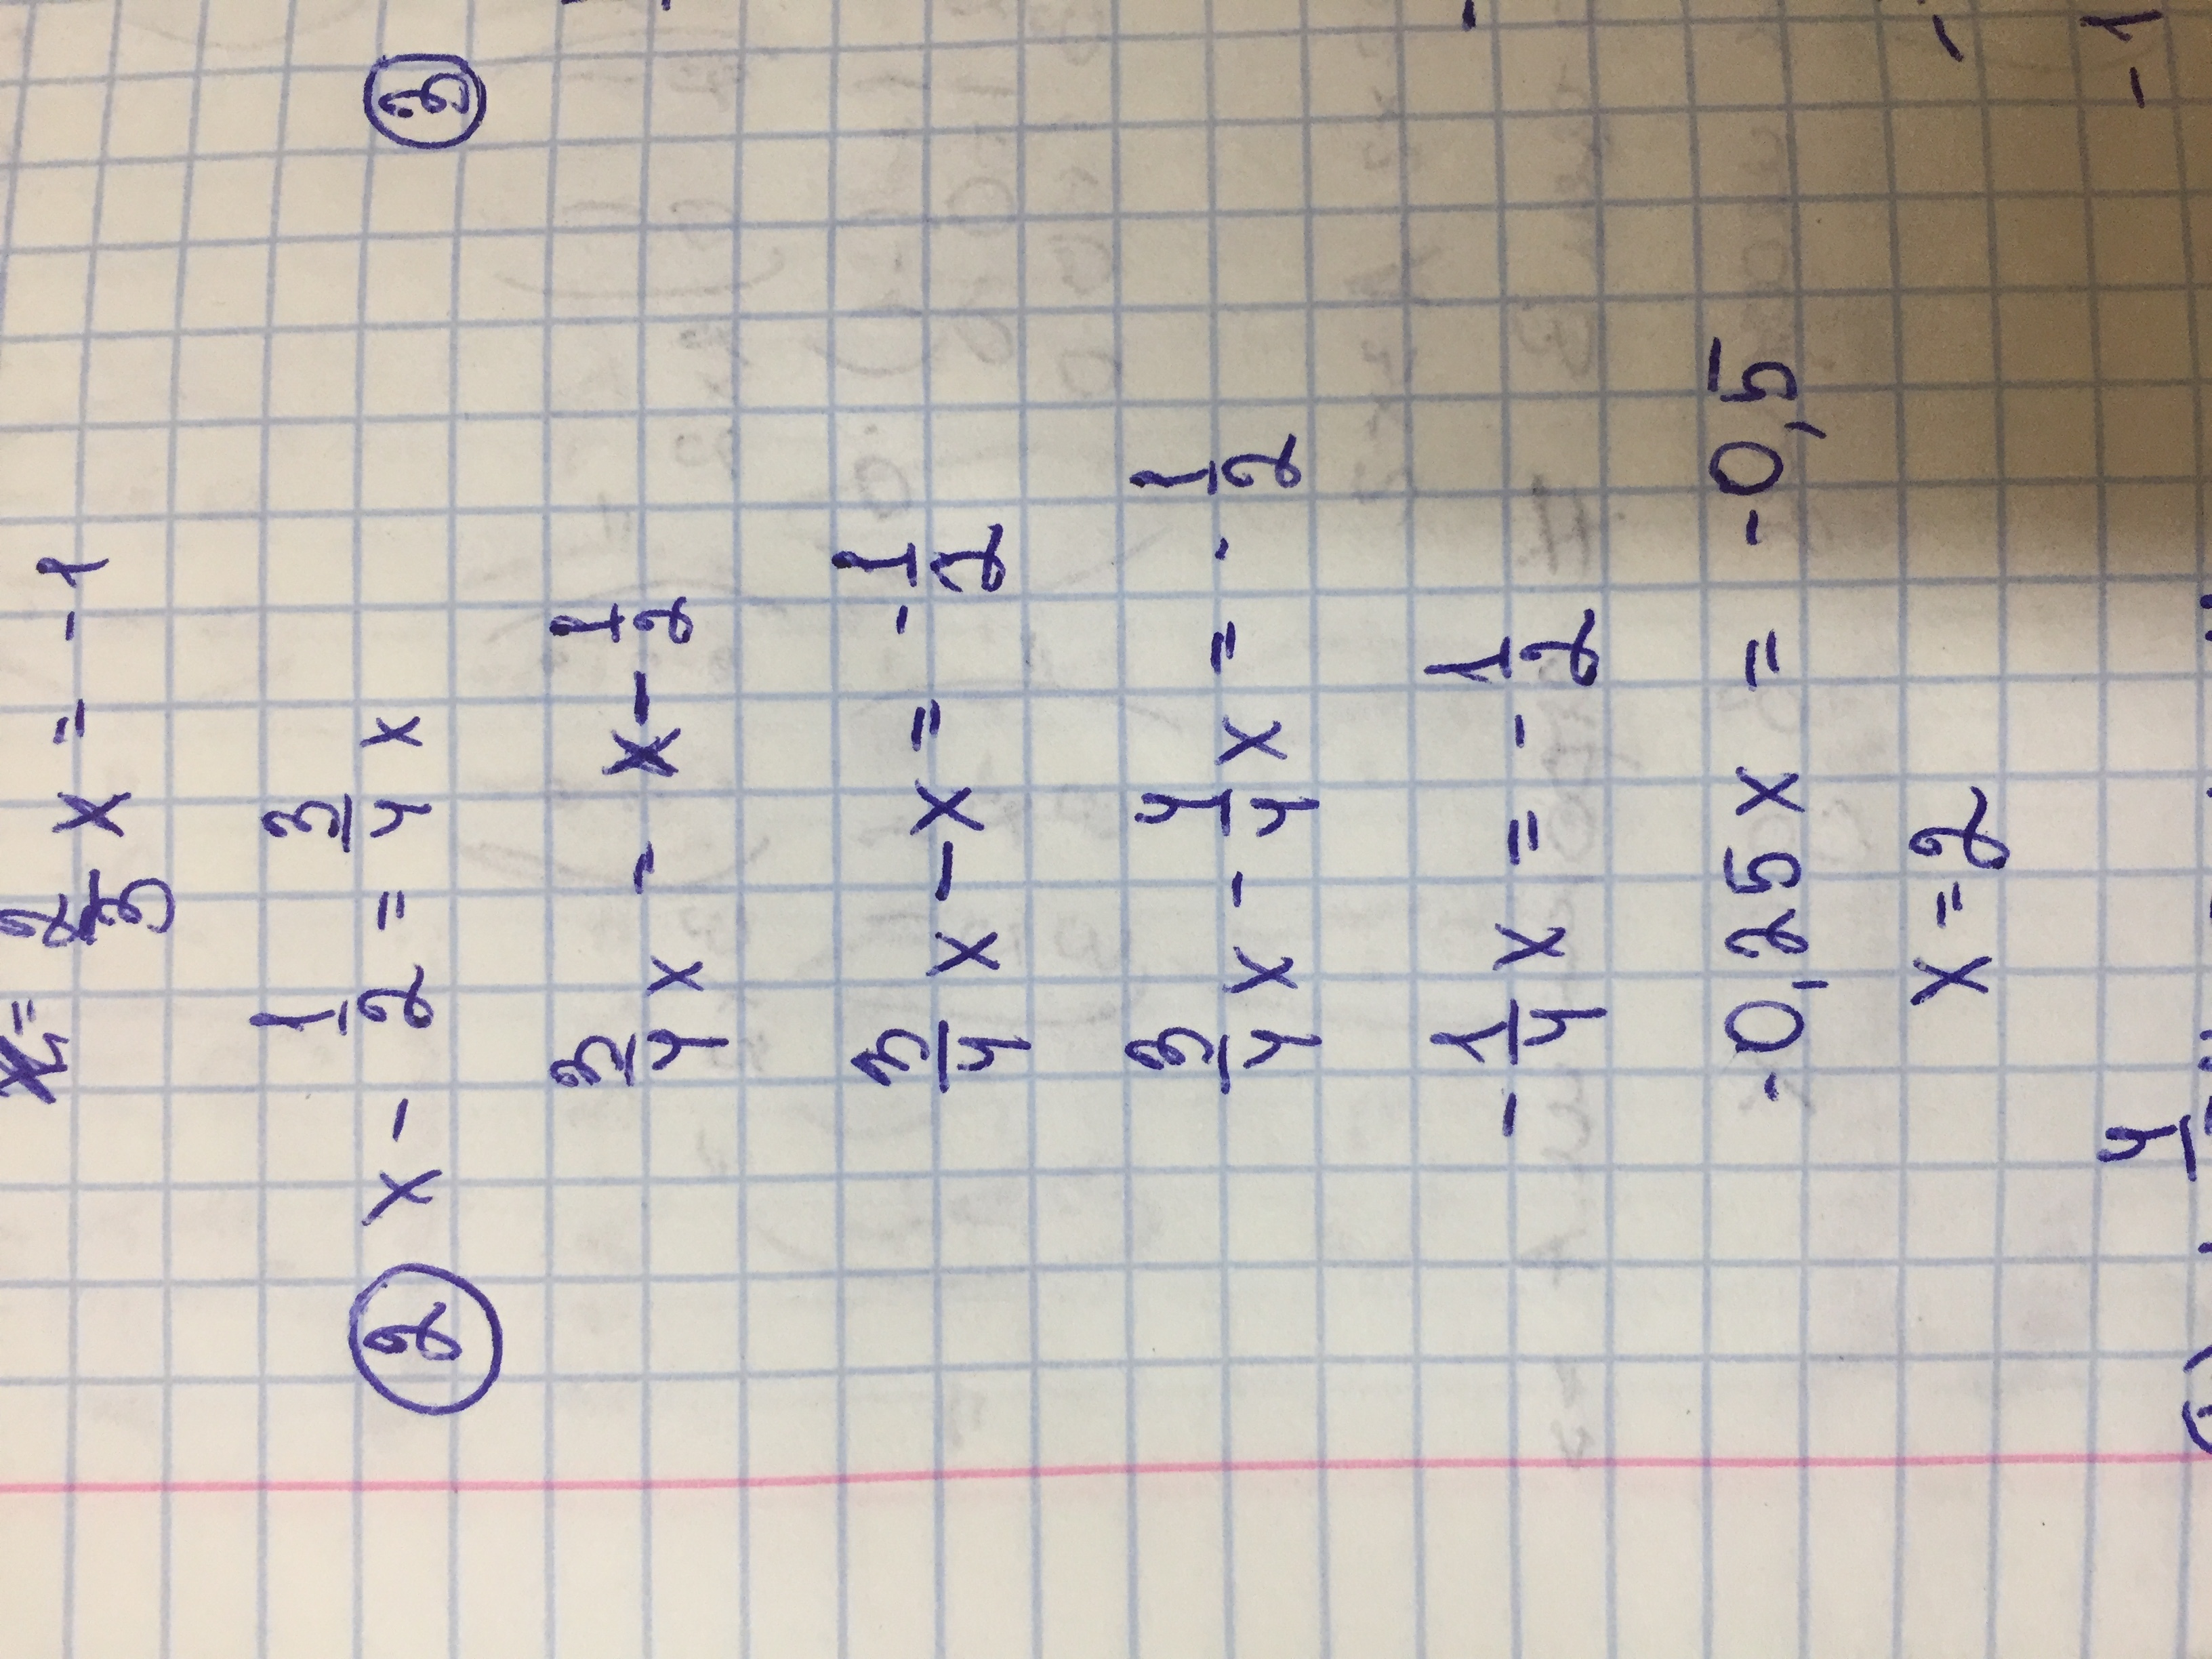 x = 2/3 x = -1
② x - 1/2 = 3/4 x ③
3/4 x = x - 1/2
3/4 x - x = -1/2
3/4 x - 4/4 x = -1/2
-1/4 x = -1/2
-0,25x = -0,5
x = 2